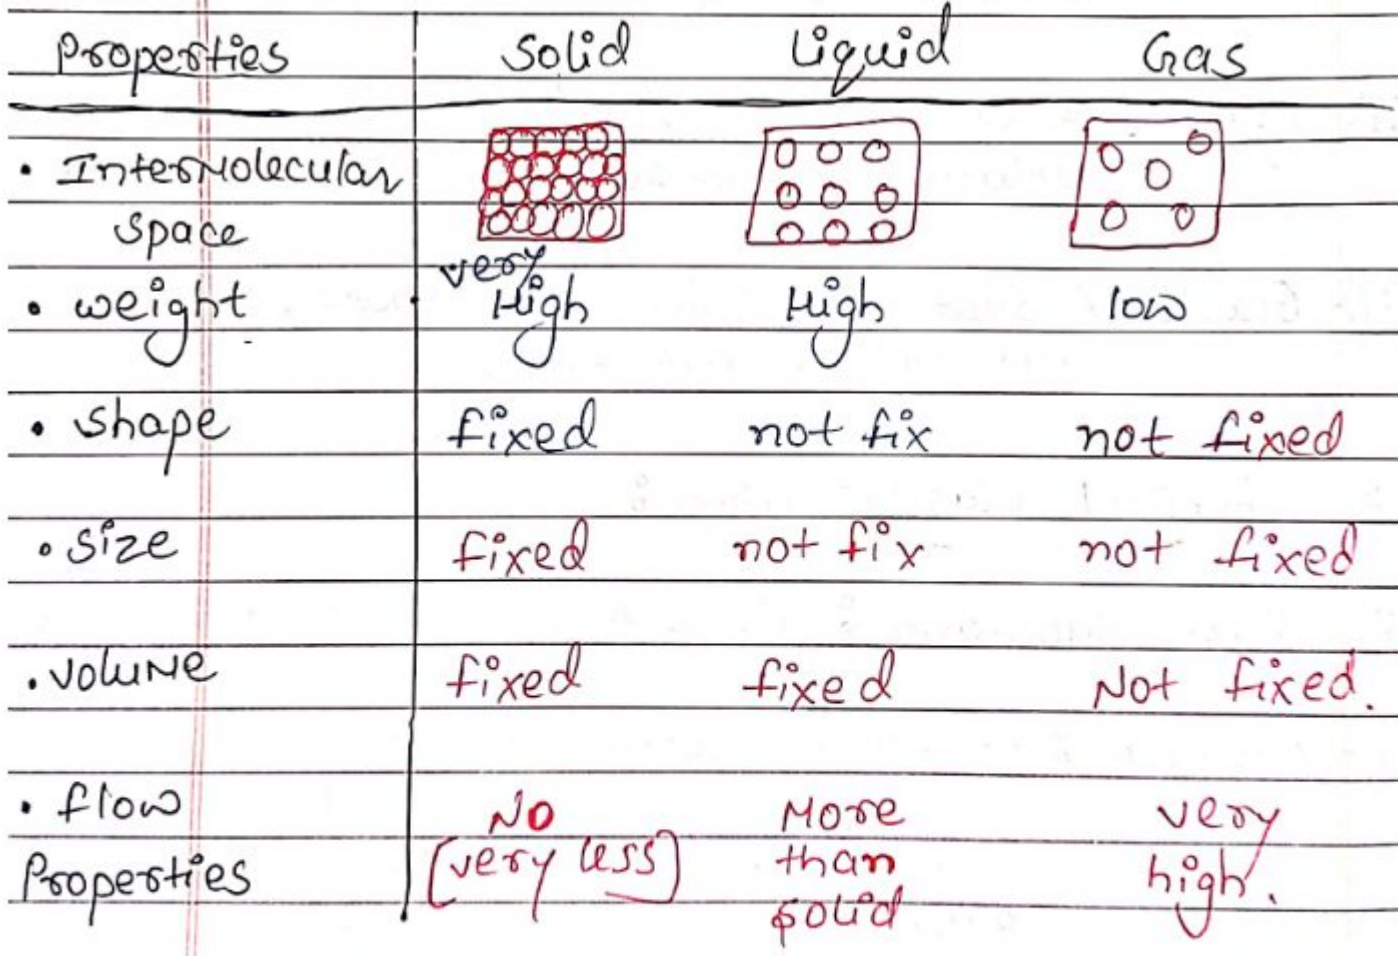 Properties Solid Liquid Gas
• Intermolecular
space
very
• weight High High low
• shape fixed not fix not fixed
• size fixed not fix not fixed
• volume fixed fixed Not fixed.
• flow NO More very
Properties (very less) than high.
solid